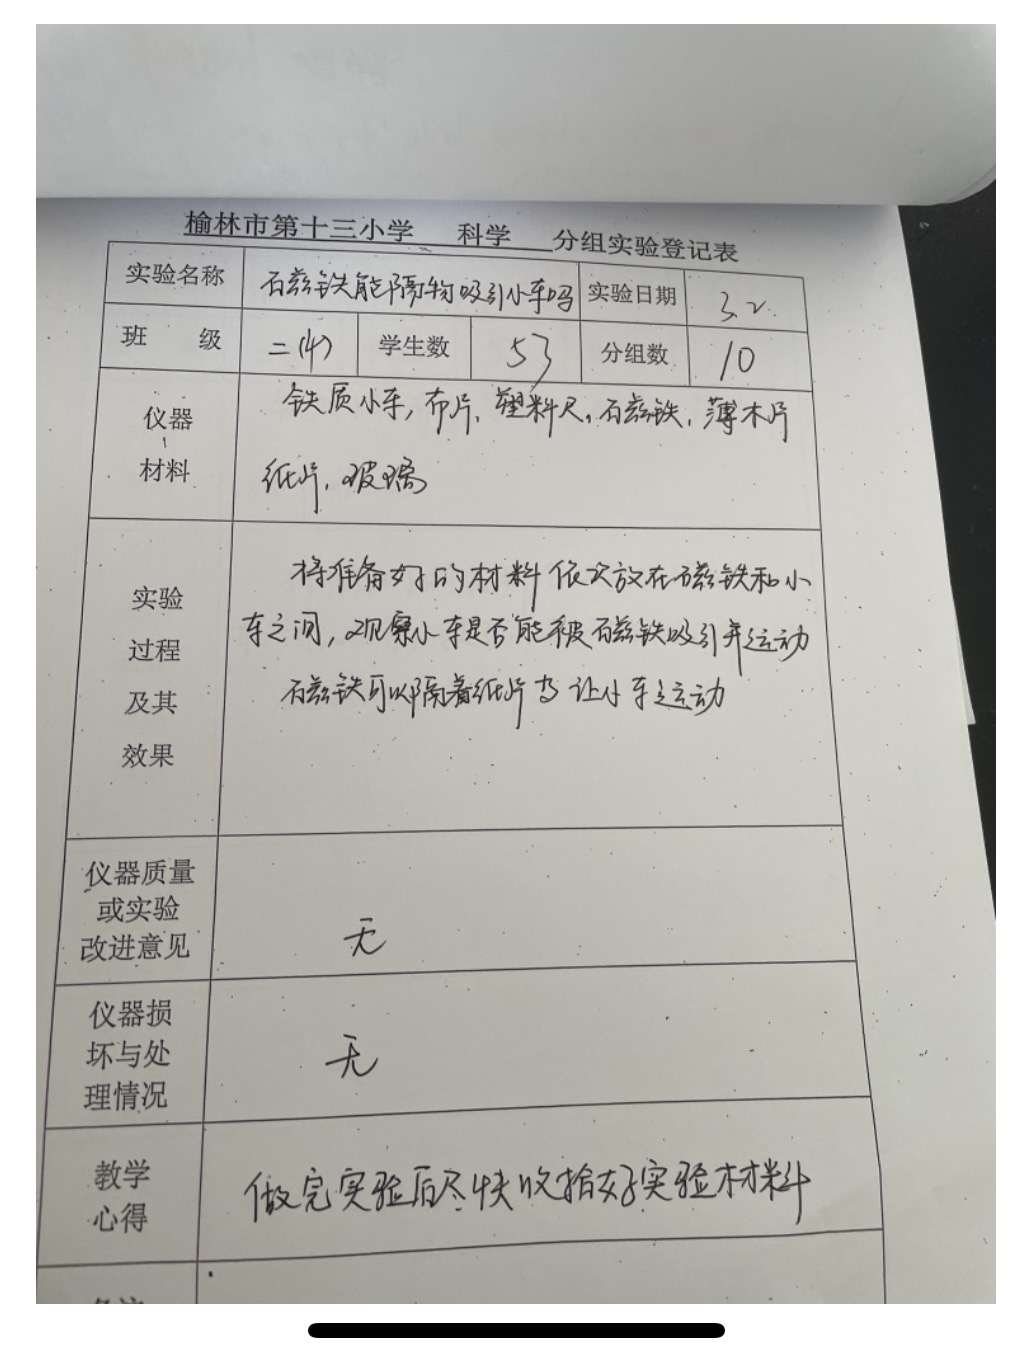 榆林市第十三小学 科学 分组实验登记表
实验名称 磁铁能隔物吸引小车吗 实验日期 3.2.
班级 二(4) 学生数 53 分组数 10
仪器 铁质小车,布片,塑料尺,磁铁,薄木片
材料 纸片,玻璃
实验 将准备好的材料依次放在磁铁和小
过程 车之间,观察小车是否能被磁铁吸引并运动
及其 磁铁可以隔着纸片 让小车运动
效果
仪器质量
或实验
改进意见 无
仪器损
坏与处 无
理情况
教学 做完实验后尽快收拾好实验材料
心得